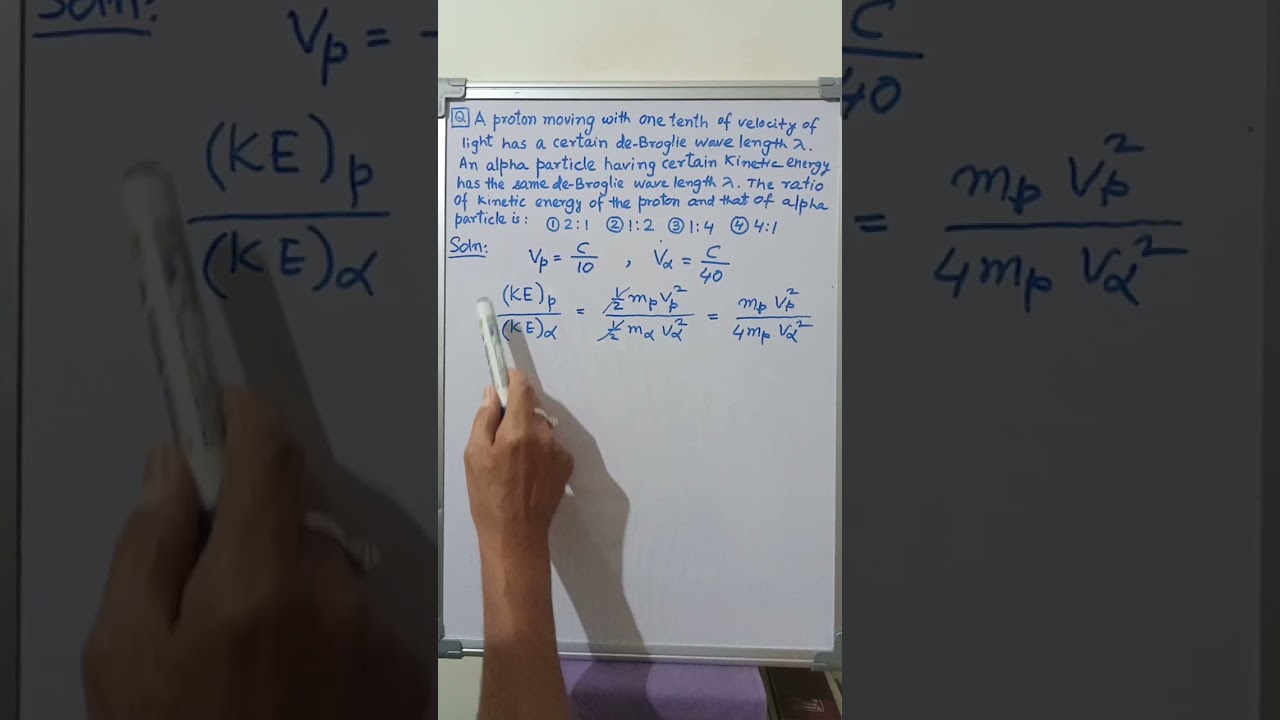 Q A proton moving with one tenth of velocity of
light has a certain de-Broglie wave length λ.
An alpha particle having certain Kinetic energy
has the same de-Broglie wave length λ. The ratio
of Kinetic energy of the proton and that of alpha
particle is: ① 2:1 ② 1:2 ③ 1:4 ④ 4:1
Soln:
Vp = C/10 , Vα = C/40
(KE)p/(KE)α = ½ mp Vp²/½ mα Vα² = mp Vp²/4mp Vα²